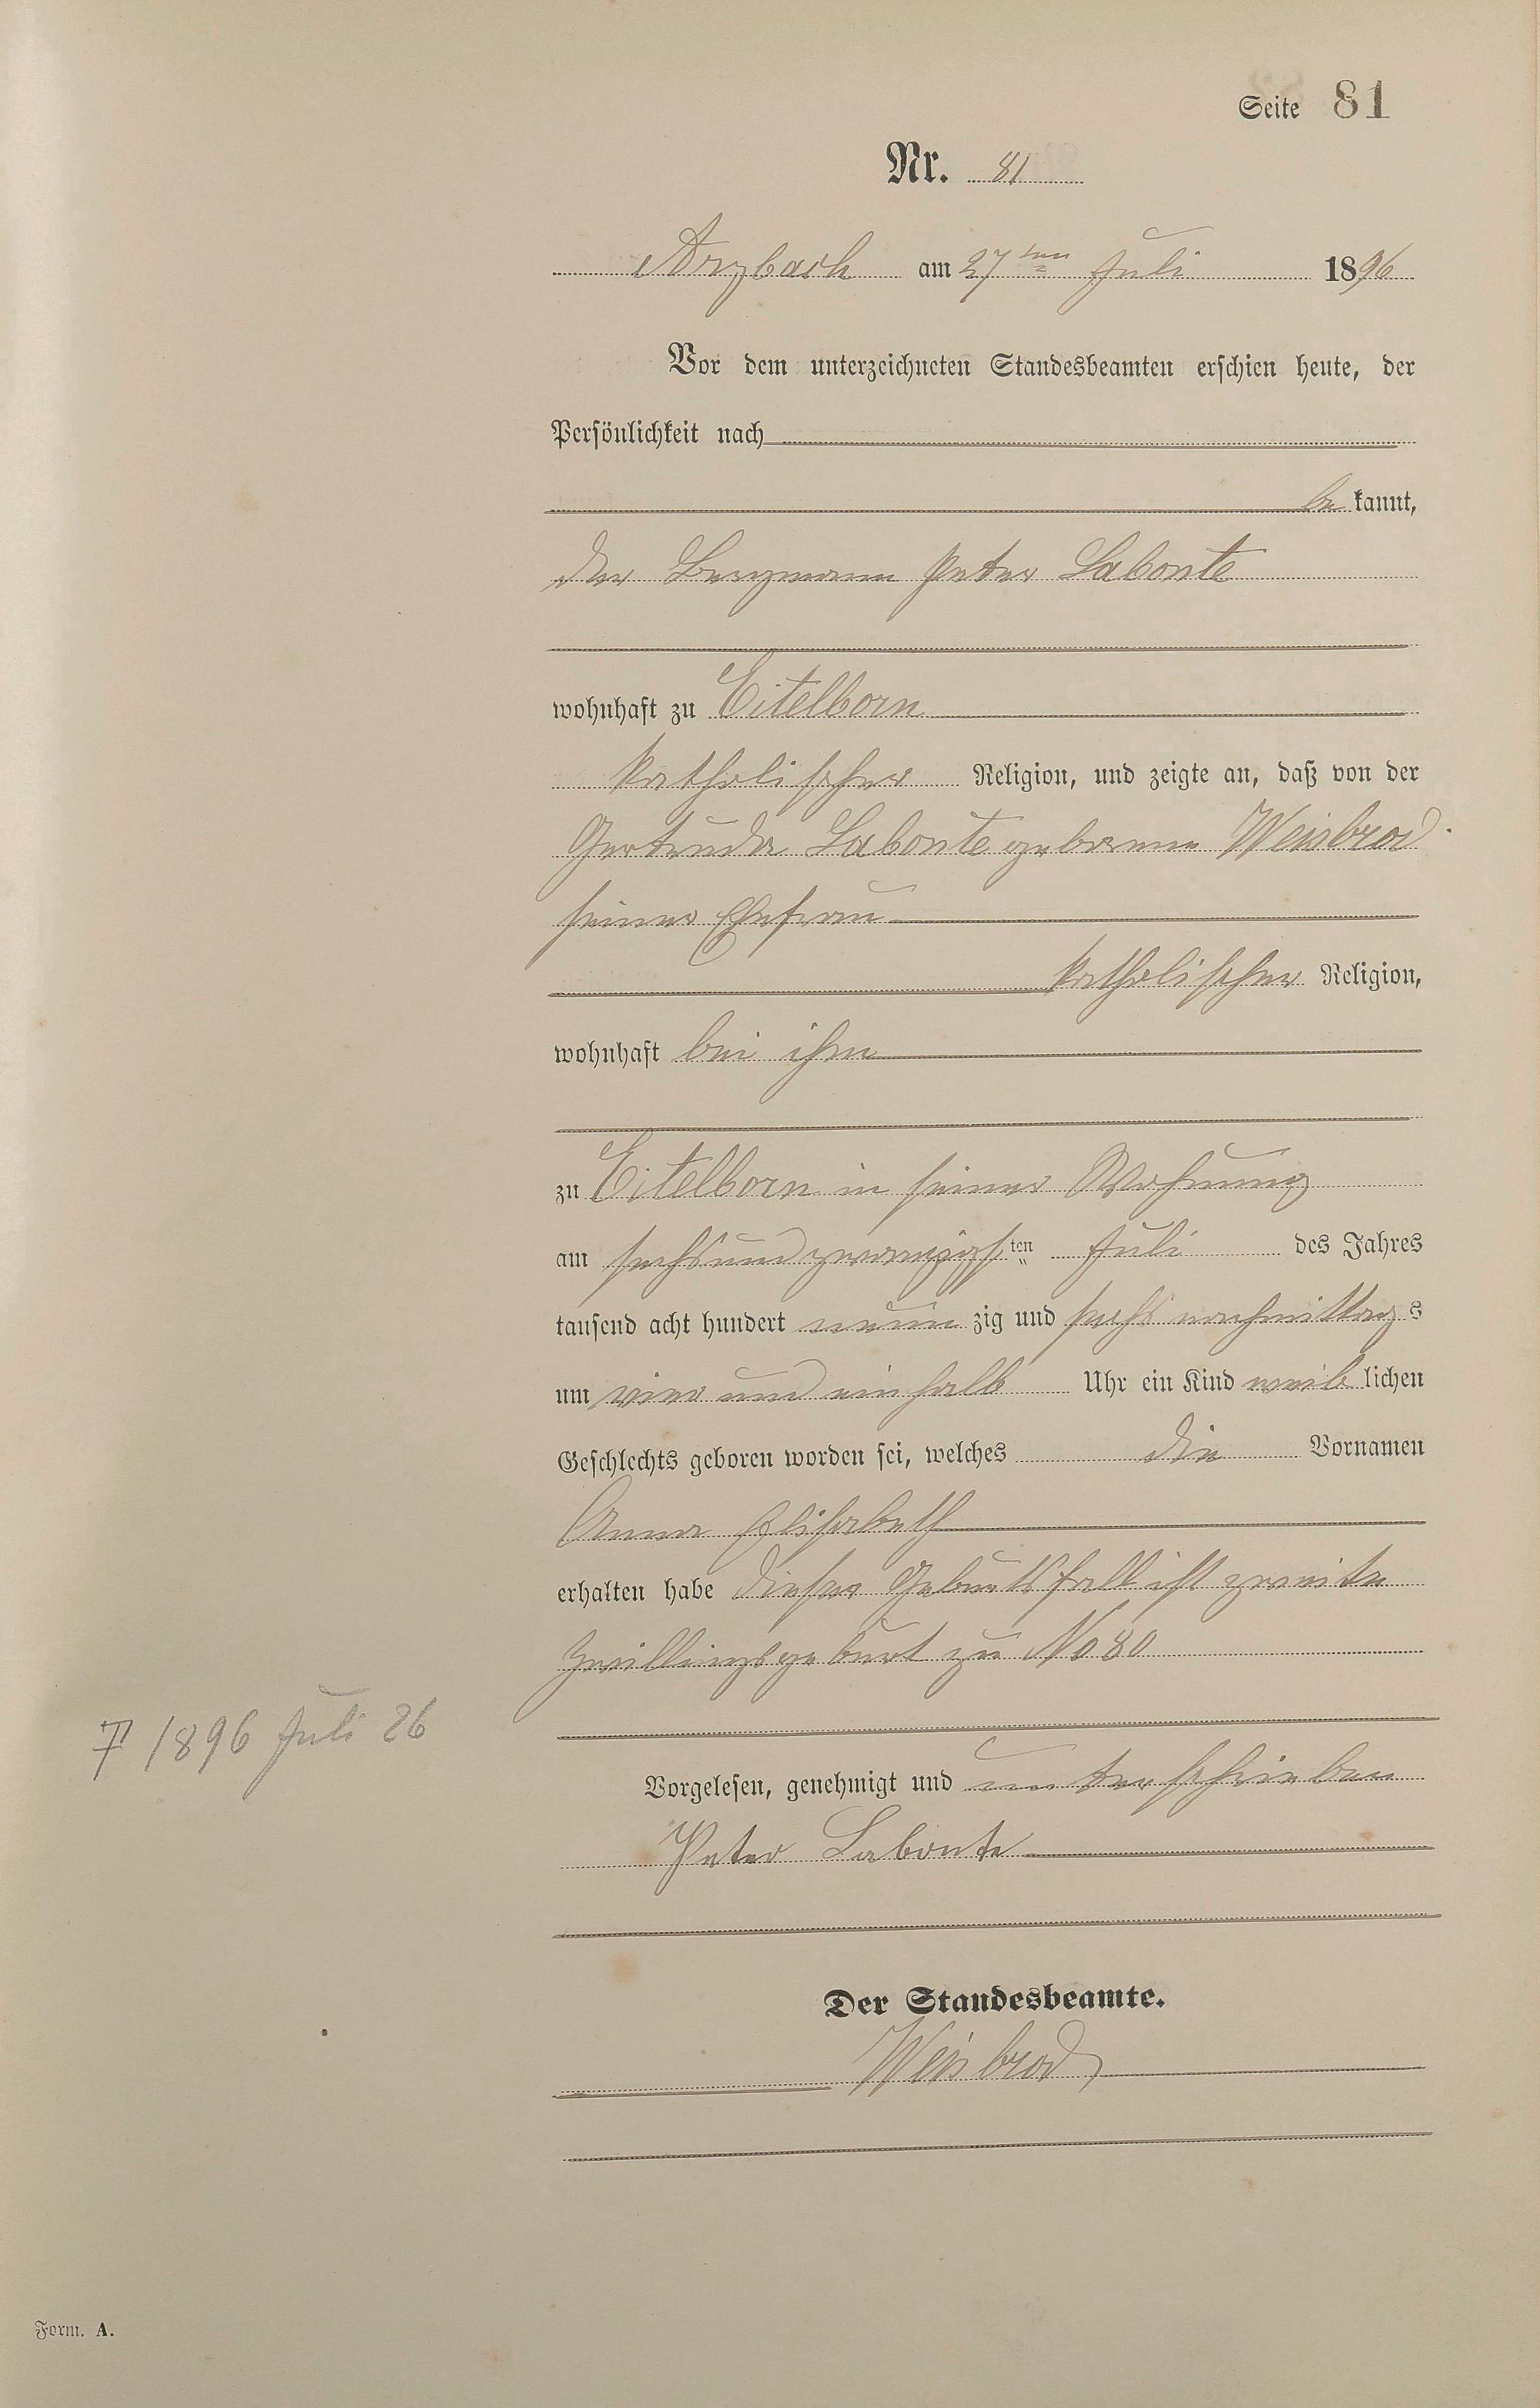 Seite 81
Nr. 81
Arzbach am 27ten Juli 1896
Vor dem unterzeichneten Standesbeamten erschien heute, der
Persönlichkeit nach
be kannt,
der Bergmann Peter Labonte
wohnhaft zu Eitelborn
katholischer Religion, und zeigte an, daß von der
Gertruda Labonte geborene Weisbrod
seiner Ehefrau
katholischer Religion,
wohnhaft bei ihm
zu Eitelborn in seiner Wohnung
am sechsundzwanzigsten Juli des Jahres
tausend acht hundert neun zig und sechs nachmittags
um vier und ein halb Uhr ein Kind weib lichen
Geschlechts geboren worden sei, welches die Vornamen
Anna Elisabeth
erhalten habe dieser Geburtsfall ist zweite
Zwillingsgeburt zu No 80
† 1896 Juli 26
Vorgelesen, genehmigt und unterschrieben
Peter Labonte
Der Standesbeamte.
Weisbrod
Form. A.